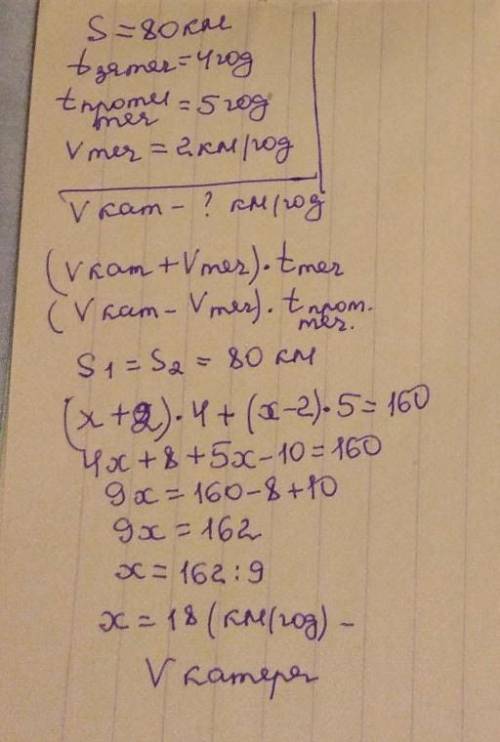 S = 80 км
t за теч = 4 год
t проти теч = 5 год
V теч = 2 км/год
V кат - ? км/год
(V кат + V теч) · t теч
(V кат - V теч) · t прот. теч.
S1 = S2 = 80 км
(x + 2) · 4 + (x - 2) · 5 = 160
4x + 8 + 5x - 10 = 160
9x = 160 - 8 + 10
9x = 162
x = 162 : 9
x = 18 (км/год) -
V катера